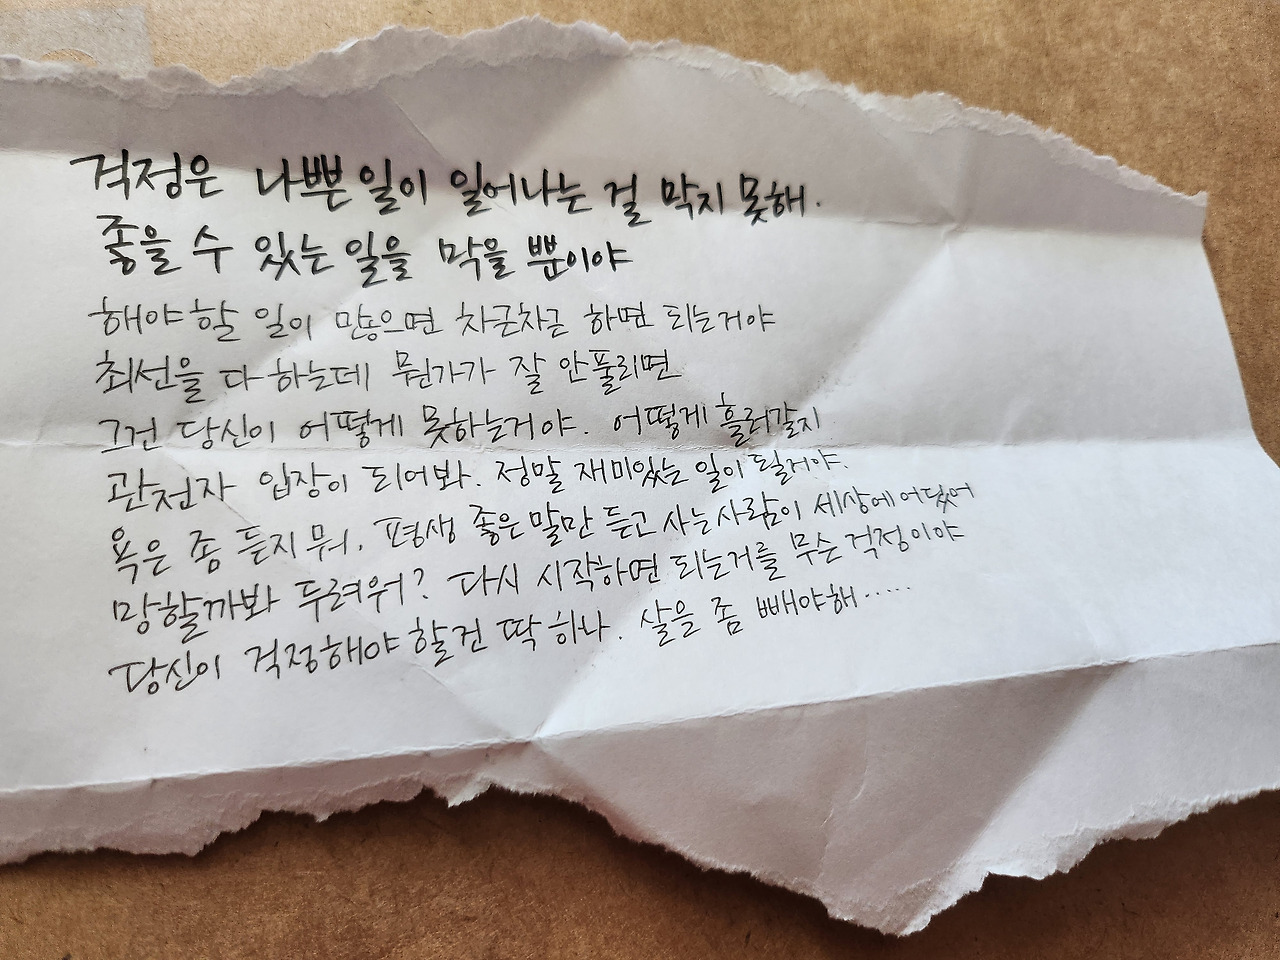 걱정은 나쁜 일이 일어나는 걸 막지 못해.
좋을 수 있는 일을 막을 뿐이야
해야할 일이 많으면 차근차근 하면 되는거야
최선을 다 하는데 뭔가가 잘 안풀리면
그건 당신이 어떻게 못하는거야. 어떻게 흘러갈지
관전자 입장이 되어봐. 정말 재미있는 일이 될거야.
욕은 좀 듣지 뭐. 평생 좋은 말만 듣고 사는 사람이 세상에 어딨어
망할까봐 두려워? 다시 시작하면 되는거를 무슨 걱정이야
당신이 걱정해야 할건 딱 하나. 살을 좀 빼야해……